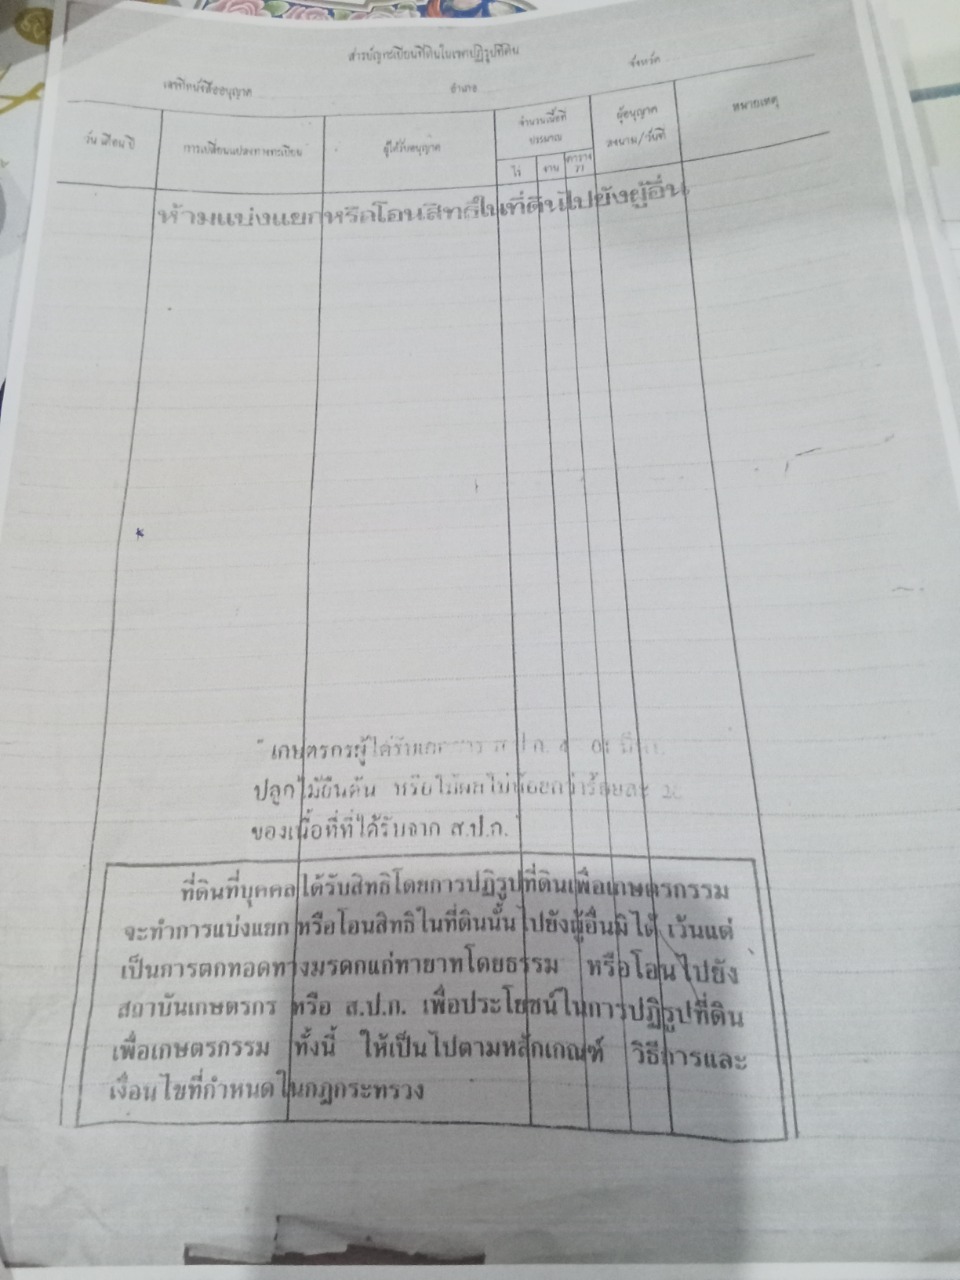 สารบัญทะเบียนที่ดินในเขตปฏิรูปที่ดิน
เลขที่หนังสืออนุญาต อำเภอ จังหวัด
วัน เดือน ปี การเปลี่ยนแปลงทางทะเบียน ผู้ได้รับอนุญาต จำนวนเนื้อที่ ผู้อนุญาต หมายเหตุ
ประมาณ ลงนาม/วันที่
ไร่ งาน ตาราง
วา
ห้ามแบ่งแยกหรือโอนสิทธิในที่ดินไปยังผู้อื่น
" เกษตรกรผู้ได้รับเอกสาร ส.ป.ก. 4 - 01
ปลูกไม้ยืนต้น หรือไม้ผลไม่น้อยกว่าร้อยละ
ของเนื้อที่ที่ได้รับจาก ส.ป.ก. "
ที่ดินที่บุคคลได้รับสิทธิโดยการปฏิรูปที่ดินเพื่อเกษตรกรรม
จะทำการแบ่งแยก หรือโอนสิทธิในที่ดินนั้นไปยังผู้อื่นมิได้ เว้นแต่
เป็นการตกทอดทางมรดกแก่ทายาทโดยธรรม หรือโอนไปยัง
สถาบันเกษตรกร หรือ ส.ป.ก. เพื่อประโยชน์ในการปฏิรูปที่ดิน
เพื่อเกษตรกรรม ทั้งนี้ ให้เป็นไปตามหลักเกณฑ์ วิธีการและ
เงื่อนไขที่กำหนดในกฎกระทรวง